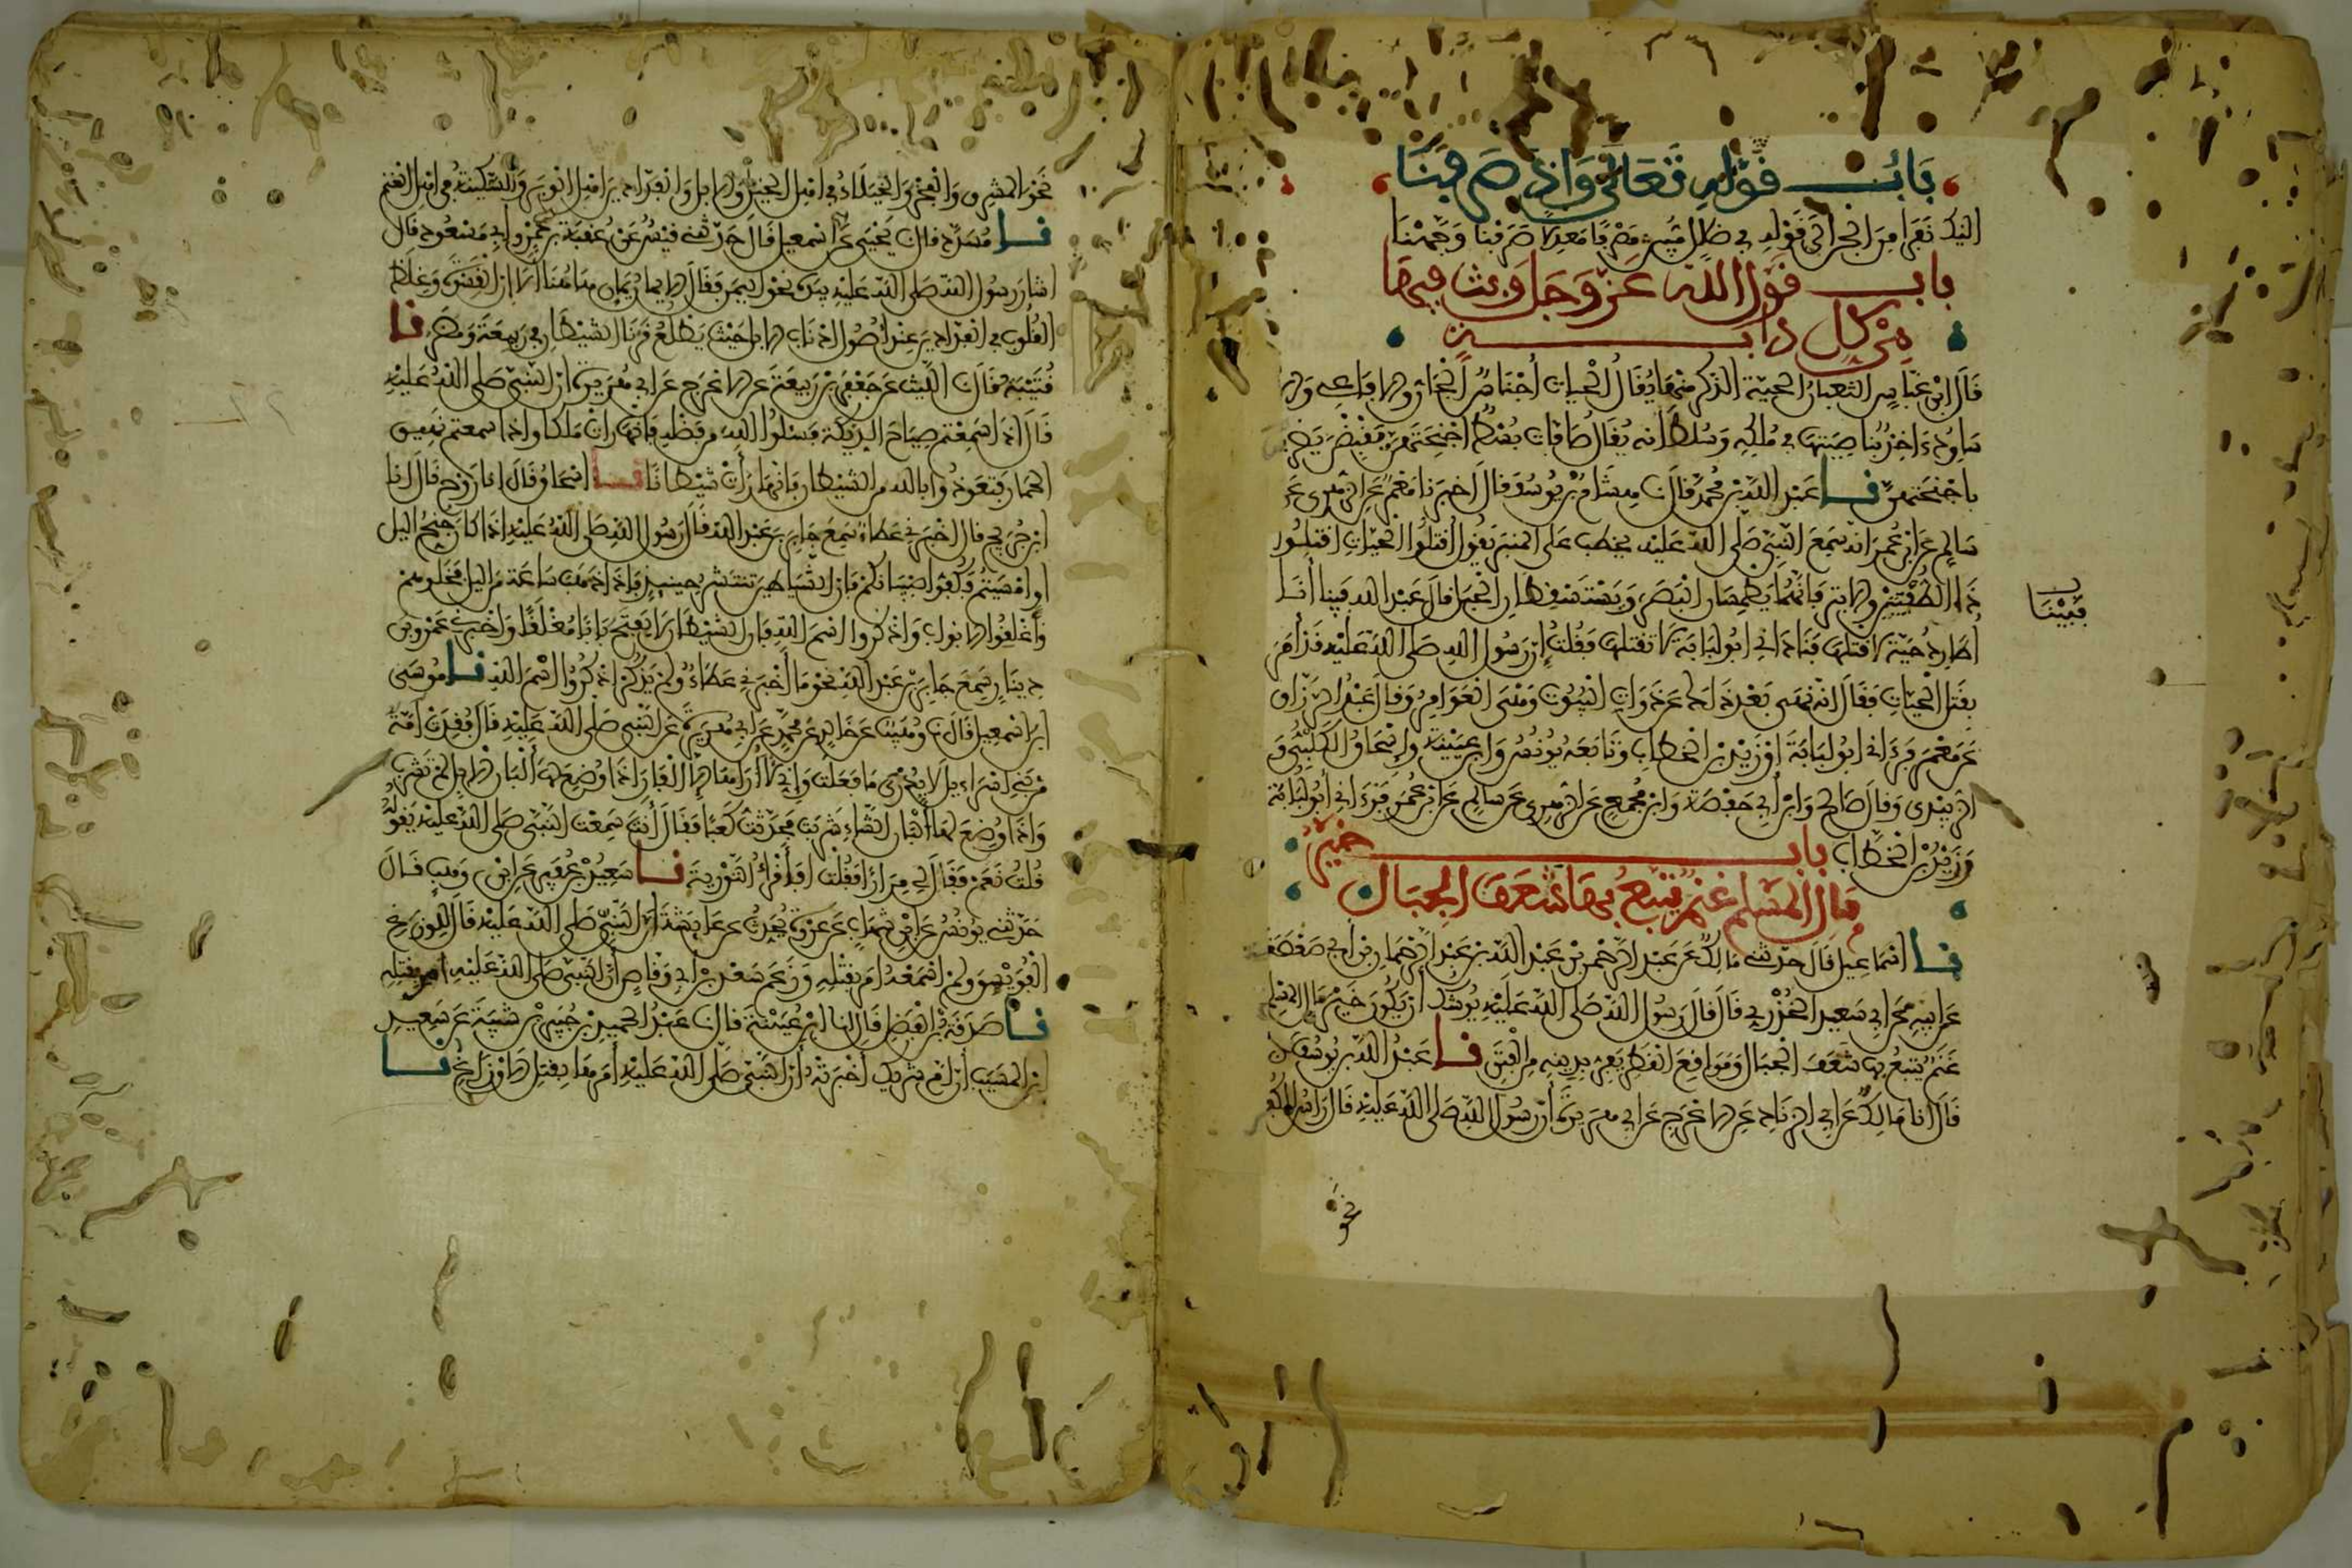 بَابُ قَوْلِهِ تَعَالَى وَإِذْ صَرَفْنَا
إِلَيْكَ نَفَرًا مِنَ الْجِنِّ إلى قَوْلِهِ في ضَلَالٍ مُبِينٍ مَصْرِفًا مَعْدِلًا صَرَفْنَا وَجَّهْنَا
باب قَوْل اللهِ عَزَّ وَجَلَّ وَبَثَّ فِيهَا
مِنْ كُلِّ دَابَّةٍ
قَالَ ابْنُ عَبَّاسٍ الثعبانُ الحيّة الذكر منها يُقَالُ الْحَيات أَجْنَاسٌ الْجَانّ والافاعي والا
ساوِدُ ءَاخِذٌ بناصِيَتِها في مُلْكِهِ وَسُلْطَانِهِ يُقَالُ صَافَّات بُسُطٌ أَجْنِحَتهنّ يَقْبِضْنَ يَضْرِبْنَ
باجْنِحَتِهِنَّ نا عَبْدُ اللهِ بْنُ مُحَمَّدٍ قَالَ نا هِشَامُ بْنُ يُوسُفَ قَالَ أَخْبَرَنَا مَعْمَرٌ عَنِ الزُّهْرِي عَنْ
سَالِمٍ عَنِ ابْنِ عُمَرَ أَنَّهُ سَمِعَ النَّبِيَّ صَلَّى اللهُ عَلَيْهِ يخطب عَلَى المنبَر يَقُولُ اقْتُلُوا الْحَيَّاتِ اقْتُلُوا
ذَا الطُّفْيَتَيْنِ والابتر فَإِنَّهُمَا يَطْمِسَانِ الْبَصَرَ وَيَسْتَسْقِطَانِ الْحَبَل قَالَ عَبْدُ اللهِ فَبينا أَنَا
فَبَيْنَا
أُطَارِدُ حَيَّةً لأقتلها فَنَادَانِي أَبُو لُبَابَةَ لَا تقتلها فَقُلْتُ إِنَّ رَسُولَ اللهِ صَلَّى اللهُ عَلَيْهِ قَدْ أَمَرَ
بِقَتْلِ الْحَيَّاتِ فَقَالَ إنّه نَهَى بَعْدَ ذَلِكَ عَنْ ذَوَاتِ الْبُيُوت وَهْيَ الْعَوَامِرُ وَقَالَ عَبْدُ الرَّزَّاقِ
عَنْ مَعْمَرٍ فَرَءَانِي أبو لُبَابَةَ أَوْ زَيْدُ بْنُ الخطاب وَتَابَعَهُ يُونُسُ وَابْنُ عُيَيْنَةَ وَإِسْحَاقُ الْكَلْبِيُّ وَ
الزّبيدي وَقَالَ صَالِحٌ وَابْنُ أَبِي حَفْصَةَ وَابْنُ مُجَمِّعٍ عَنِ الزُّهْرِي عَنْ سَالِمٍ عَنِ ابْنِ عُمَرَ فَرَءَانِي أَبُو لُبَابَةَ
وَزَيْدُ بْنُ الْخَطَّابِ باب خَيْرُ
مَالِ الْمُسْلِمِ غَنَمٌ يَتْبَعُ بِهَا شَعَفَ الْجِبَالِ
نا إِسْمَاعِيلُ قَالَ حَدَّثَنِي مَالِكٌ عَنْ عَبْدِ الرَّحْمَنِ بْنِ عَبْدِ اللهِ بْنِ عَبْدِ الرَّحْمَنِ بْنِ أَبِي صَعْصَعَةَ
عَنْ أَبِيهِ عَنْ أَبِي سَعِيدٍ الْخُدْرِيِّ قَالَ قَالَ رَسُولُ اللهِ صَلَّى اللهُ عَلَيْهِ يُوشِكُ أَنْ يَكُونَ خَيْرَ مَالِ الْمُسْلِمِ
غَنَمٌ يَتْبَعُ بِهَا شَعَفَ الْجِبَالِ وَمَوَاقِعَ الْقَطْرِ يَفِرُّ بِدِينِهِ مِنَ الْفِتَنِ نا عَبْدُ اللهِ بْنُ يُوسُفَ
قَالَ أنا مَالِكٌ عَنْ أَبِي الزِّنَادِ عَنِ الأعْرَجِ عَنْ أَبِي هُرَيْرَةَ أَنَّ رَسُولَ اللهِ صَلَّى اللهُ عَلَيْهِ قَالَ رَاسُ الْكُفْرِ
نحو
نَحْوَ المشرق وَالْفَخْرُ وَالْخُيَلَاءُ فِي أَهْلِ الْخَيْلِ والابل وَالْفَدَّادِينَ أَهْلِ الْوَبَرِ وَالسَّكِينَةُ فِي أَهْلِ الْغَنَمِ
نا مُسَدَّدٌ قال نا يَحْيَى عَنْ إِسْمَعِيلَ قَالَ حَدَّثَنِي قَيْسٌ عَنْ عُقْبَةَ بْنِ عَمْرٍو أَبِي مَسْعُودٍ قال
أشارَ رَسُولُ اللهِ صَلَّى اللهُ عَلَيْهِ بيده نَحْوَ اليمن فَقَالَ الايمان يَمَانٍ هَاهُنَا أَلَا إِنَّ الْقَسْوَةَ وَغِلَظَ
الْقُلُوبِ فِي الْفَدَّادِينَ عِنْدَ أُصُولِ أذْنَابِ الابل حَيْثُ يَطْلُعُ قَرْنَا الشَّيْطَانِ فِي رَبِيعَةَ وَمُضَرَ نا
قُتَيْبَةُ قَالَ نا اللَّيْث عَنْ جَعْفَرِ بْنِ رَبِيعَةَ عَنِ الأعْرَجِ عَنْ أَبِي هُرَيْرَةَ أَنَّ النَّبِيَّ صَلَّى اللهُ عَلَيْهِ
قَالَ إِذَا سَمِعْتُمْ صِيَاحَ الدِّيَكَةِ فَسْئلُوا اللهَ مِنْ فَضْلِهِ فَإِنَّهَا رَأَتْ مَلَكًا وإذا سمعتم نهيق
الحمار فَتَعَوَّذُوا بِاللهِ مِنَ الشَّيْطَانِ فَإِنَّهَا رَأَتْ شَيْطَانًا نا إِسْحَاقُ قَالَ انا رَوْحٌ قَالَ انا
ابْنُ جُرَيْجٍ قال أَخْبَرَنِي عَطَاءٌ سَمِعَ جَابِرَ بْنَ عَبْدِ اللهِ قَالَ رَسُولُ اللهِ صَلَّى اللهُ عَلَيْهِ إِذَا كَانَ جُنْحُ اليل
أَوْ أَمْسَيْتُمْ فَكُفُّوا صِبْيَانَكُمْ فَإِنَّ الشَّيَاطِينَ تَنْتَشِرُ حِينَئِذٍ فَإِذَا ذَهَبَ سَاعَةٌ مِنَ اليل فَخَلُّوهُمْ
وَأَغْلِقُوا الابواب وَاذْكُرُوا اسْمَ اللهِ فَإِنَّ الشَّيْطَانَ لَا يَفْتَحُ بَابًا مُغْلَقًا وَأَخْبَرَنِي عَمْرُو بْنُ
دِينَارٍ سَمِعَ جَابِرَ بْنَ عَبْدِ اللهِ نَحْوَ مَا أَخْبَرَنِي عَطَاءٌ وَلَمْ يَذْكُرْ اذْكُرُوا اسْمَ اللهِ نا مُوسَى
ابْنُ إِسْمَعِيلَ قَالَ نا وُهَيْبٌ عَنْ خَالِدٍ عَنْ مُحَمَّدٍ عَنْ أَبِي هُرَيْرَةَ عَنِ النَّبِيِّ صَلَّى اللهُ عَلَيْهِ قَالَ فُقِدَتْ أُمَّةٌ
مِنْ بَنِي إِسْرَاءِيلَ لَا يُدْرَى مَا فَعَلَتْ وَإِنِّي لَا أُرَاهَا إِلَّا الْفَارَ إِذَا وُضِعَ لَهَا أَلْبَانُ الابل لم تَشْرَبْ
وَإِذَا وُضِعَ لَهَا أَلْبَانُ الشَّاءِ شَرِبَتْ فَحَدَّثْتُ كَعْبًا فَقَالَ أَنْتَ سَمِعْتَ النَّبِيَّ صَلَّى اللهُ عَلَيْهِ يَقُولُهُ
قُلْتُ نَعَمْ فَقَالَ لِي مِرَارًا فَقُلْتُ أَفَأَقْرَأُ التَّوْرِيةَ نا سَعِيدُ بْنُ عُفَيْرٍ عَنِ ابْنِ وَهْبٍ قَالَ
حَدَّثَنِي يُونُسُ عَنِ ابْنِ شِهَابٍ عَنْ عُرْوَةَ يُحَدِّثُ عَنْ عَايِشَةَ أَنَّ النَّبِيَّ صَلَّى اللهُ عَلَيْهِ قَالَ لِلْوَزَغِ
الْفُوَيْسِقُ وَلَمْ أَسْمَعْهُ أَمَرَ بِقَتْلِهِ وَزَعَمَ سَعْدُ بْنُ أَبِي وَقَّاصٍ أَنَّ النَّبِيَّ صَلَّى اللهُ عَلَيْهِ أمر بقتله
نا صَدَقَةُ بْنُ الْفَضْلِ قَالَ انا ابْنُ عُيَيْنَةَ قال نا عَبْدُ الْحَمِيدِ بْنُ جُبَيْرِ بْنِ شَيْبَةَ عَنْ سَعِيدِ
بْنِ المسَيّب أَنَّ أُمَّ شَرِيكٍ أَخْبَرَتْهُ أَنَّ النَّبِيَّ صَلَّى اللهُ عَلَيْهِ أَمَرَهَا بِقَتْلِ الأوْزَاغِ نا